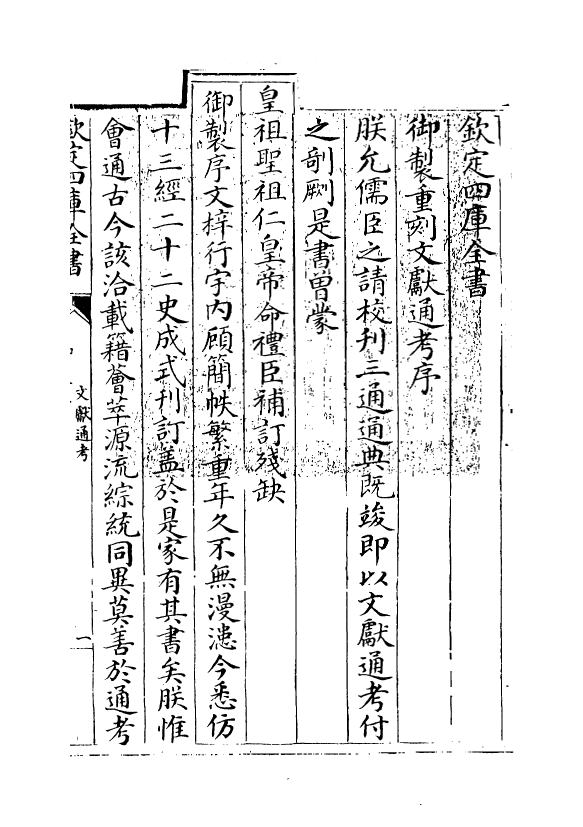 欽定四庫全書
御製重刻文獻通考序
朕允儒臣之請校刊三通通典既竣即以文獻通考付
之剞劂是書曽蒙
皇祖聖祖仁皇帝命禮臣補訂殘缺
御製序文梓行宇内顧簡帙繁重年久不無漫漶今悉仿
十三經二十二史成式刊訂盖於是家有其書矣朕惟
會通古今該洽載籍薈萃源流綜統同異莫善於通考
欽定四庫全書
文獻通考
一